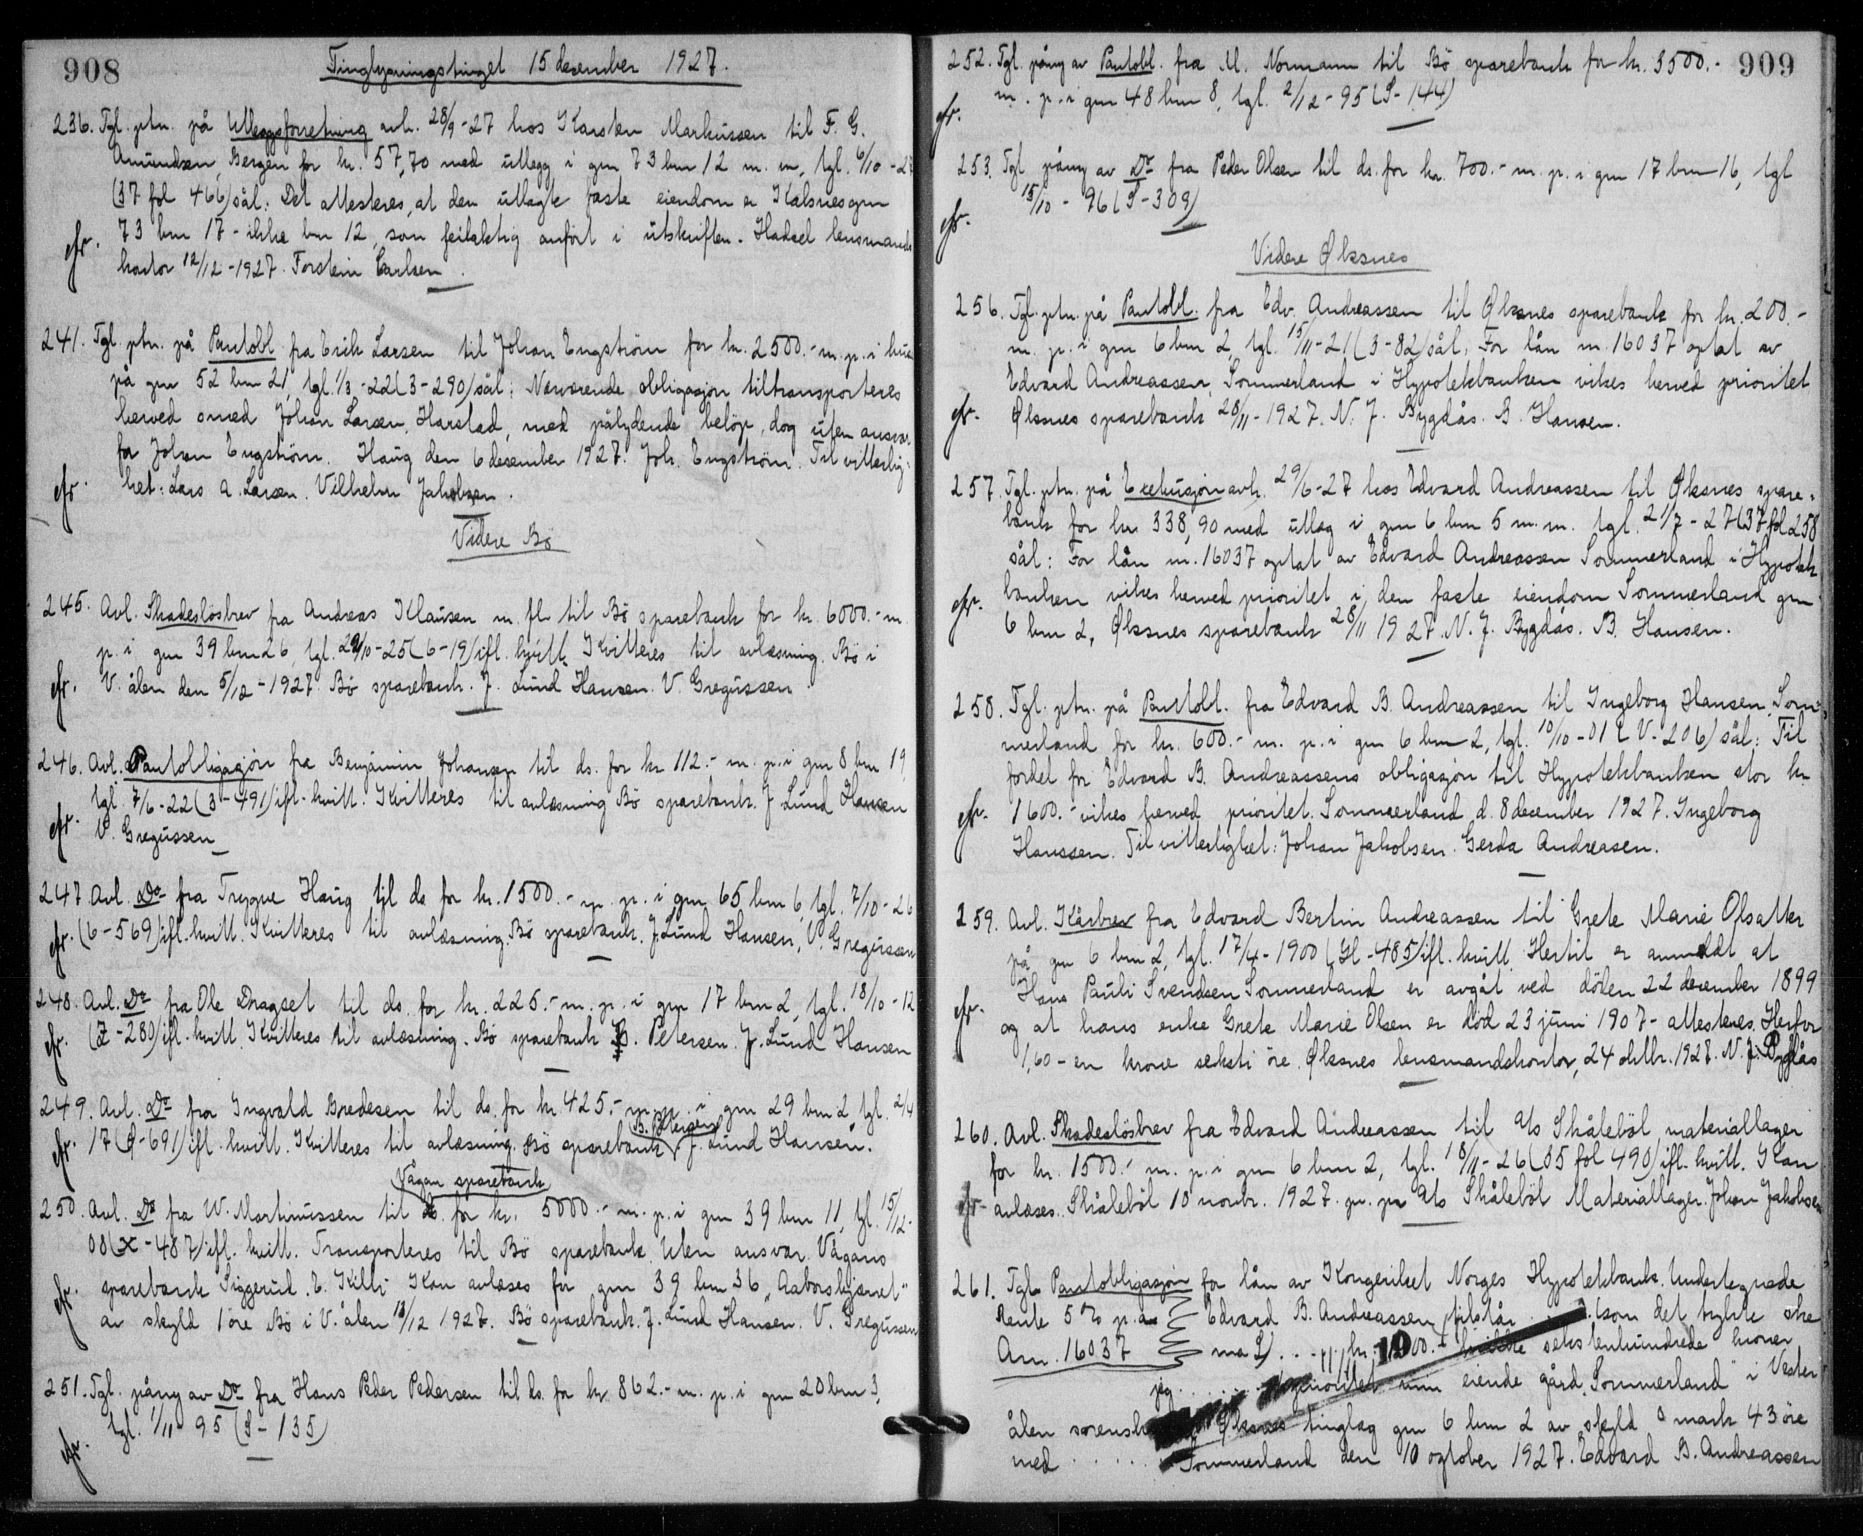 908
Tinglysningstinget 15 desember 1927.
236. Tgl. ptn. på Utleggsforretning avh. 28/9-27 hos Karsten Markussen til F. G.
Amundsen, Bergen for kr. 57,70 med utlegg i gnr 73 bnr 12 m. m, tgl. 6/10-27
(37 fol 466) sål: Det attesteres, at den utlagte faste eiendom er Kalsnes gnr
73 bnr 17 - ikke bnr 12, som feilaktig anført i utskriften. Hadsel lensmands
cfr. kontor 12/12-1927. Torstein Carlsen.
241. Tgl. ptn. på Pantobl fra Erik Larsen til Johan Engstrøm for kr. 2500.- m. p. i hus
på gnr 52 bnr 21, tgl. 1/3-22 (3-290) sål: Nærværende obligasjon tiltransporteres
herved smed Johan Larsen, Harstad, med pålydende beløp, dog uten ansvar
for Johan Engstrøm. Haug den 6 desember 1927. Joh. Engstrøm. Til vitterlig-
cfr. het: Lars A. Larsen. Vilhelm Jakobsen.
Videre Bø
245. Avl. Skadesløsbrev fra Andreas Klausen m. fl til Bø sparebank for kr. 6000.- m.
p. i gnr 39 bnr 26, tgl. 29/10-25 (6-19) ifl. kvitt. Kvitteres til avlæsning. Bø i
cfr. V. ålen den 5/12-1927. Bø sparebank. J. Lund Hansen. V. Gregussen
246. Avl. Pantobligasjon fra Benjamin Johansen til ds. for kr 112.- m. p. i gnr 8 bnr 19
tgl. 7/6-22 (3-491) ifl. kvitt. Kvitteres til avlæsning Bø sparebank. J Lund Hansen
cfr. V. Gregussen
247. Avl. Do fra Trygve Haug til ds for kr. 1500.- m. p. i gnr 65 bnr 6, tgl. 7/10-26
cfr. (6-569) ifl. kvitt. Kvitteres til avlæsning. Bø sparebank. J. Lund Hansen, V. Gregussen
248. Avl. Do fra Ole Dragset til ds. for kr. 225.- m. p. i gnr 17 bnr 2, tgl. 18/10-12
cfr. (Z-280) ifl. kvitt. Kvitteres til avlæsning. Bø sparebank B. Petersen. J. Lund Hansen
249. Avl. Do fra Ingvald Bredesen til ds. for kr. 425.- m. p. i gnr 29 bnr 2 tgl. 2/4
B. Petersen
cfr. 17 (-691) ifl. kvitt. Kvitteres til avlæsning. Bø sparebank J. Lund Hansen.
Vågan sparebank
250. Avl. Do fra W. Martinussen til ds. for kr. 5000.- m. p. i gnr 39 bnr 11, tgl. 15/12-
08 (X-487) ifl. kvitt. Transporteres til Bø sparebank uten ansvar. Vågans
cfr. sparebank Siggerud. E. Killi Kan avlæses for gnr 39 bnr 36
av skyld 1 øre Bø i V. ålen 13/12 1927. Bø sparebank. J. Lund Hansen. V. Gregussen
251. Tgl. påny av Do fra Hans Peder Pedersen til ds. for kr. 862.- m. p. i gnr 20 bnr 3,
cfr. tgl. 1/11 95 (S-135)
909
252. Tgl. påny av Pantobl. fra M. Normann til Bø sparebank for kr. 3500.-
cfr. m. p. i gnr 48 bnr 8, tgl. 2/12-95 (S-144)
253. Tgl påny av Do fra Peder Olsen til ds. for kr. 700.- m. p. i gnr 17 bnr 16, tgl
cfr. 15/10-96 (S-309)
Videre Øksnes
256. Tgl. ptn. på Pantobl. fra Edv. Andreassen til Øksnes sparebank for kr. 200.-
m. p. i gnr 6 bnr 2, tgl. 15/11-21 (3-82) sål: For lån nr. 16037 optat av
Edvard Andreassen, Sommerland i Hypotekbanken vikes herved prioritet
cfr. Øksnes sparebank 28/11-1927. N. J. Bygdås. B. Hansen.
257. Tgl. ptn. på Exekusjon avh. 29/6-27 hos Edvard Andreassen til Øksnes spare-
bank for kr 338,90 med utlæg i gnr 6 bnr 5 m. m. tgl. 21/7-27 (37 fol 258
sål: For lån nr. 16037 optat av Edvard Andreassen Sommerland i Hypotek
cfr. banken vikes herved prioritet i den faste eiendom Sommerland gnr
6 bnr 2, Øksnes sparebank 28/11 1927. N. J. Bygdås. B. Hansen.
258. Tgl. ptn. på Pantobl. fra Edvard B. Andreassen til Ingeborg Hansen, Som-
merland for kr. 600.- m. p. i gnr 6 bnr 2, tgl. 10/10-01 (V-206) sål: Til
fordel for Edvard B. Andreassens obligasjon til Hypotekbanken stor kr
cfr. 1600.- vikes herved prioritet. Sommerland, d. 8 desember 1927. Ingeborg
Hanssen. Til vitterlighet: Johan Jakobsen. Gerda Andreasen.
259. Avl. Kårbrev fra Edvard Bertin Andreassen til Grete Marie Olsatter
på gnr 6 bnr 2, tgl. 17/4-1900 (H-485) ifl. kvitt. Hertil er anmeldt at
cfr. Hans Pauli Svendsen Sommerland er avgåt ved døden 22 desember 1899
og at hans enke Grete Marie Olsen er død 23 juni 1907 - attesteres. Herfor
1,60 - en krone seksti øre. Øksnes lensmandskontor, 24 oktbr. 1927. N. J. Bygdås
260. Avl. Skadesløsbrev fra Edvard Andreassen til A/s Skåleböl materiallager
for kr. 1500.- m. p. i gnr 6 bnr 2, tgl. 18/11-26 (35 fol 490) ifl. kvitt. Kan
cfr. avlæses. Skåleböl 10 novbr. 1927. pr. pr A/s Skåleböl Materiallager. Johan Jakobsen
261. Tgl. Pantobligasjon for lån av Kongeriket Norges Hypotekbank. Undertegnede
Rente 5% p. a. Edvard B. Andreassen tilstår . . . . (som det trykte ske
Anr. 16037 ma L) . . . . . kr. 1600.- seksten hundrede kroner
jeg . . . . . . . prioritet min eiende gård "Sommerland" i Vester
ålen sorensk Øksnes tinglag gnr 6 bnr 2 av skyld 0 mark 43 øre
med . . . . . . Sommerland den 10 oktober 1927. Edvard B. Andreassen